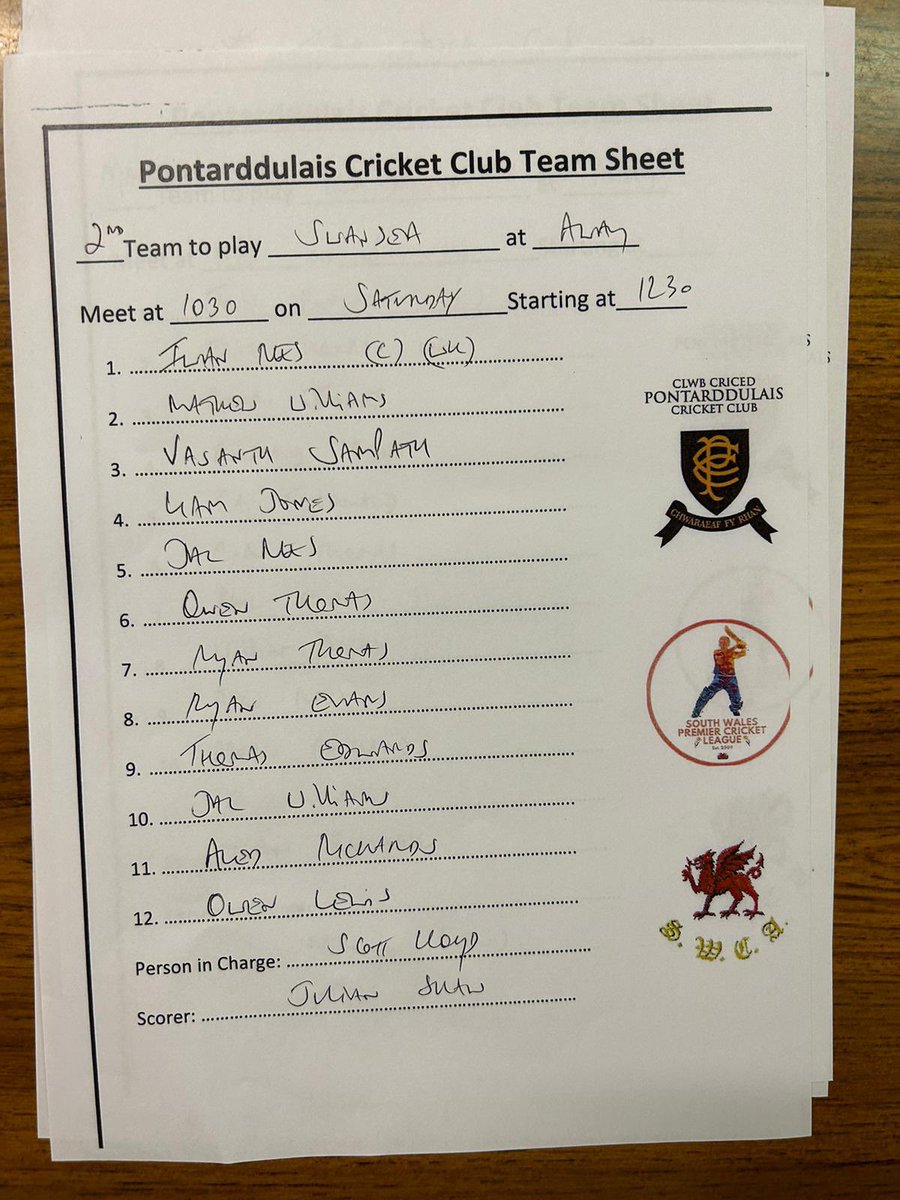 Pontarddulais Cricket Club Team Sheet
2ND Team to play SWANSEA at AWAY
Meet at 1030 on SATURDAY Starting at 1230
1. IWAN REES (C) (WK)
2. MATHEW WILLIAMS
3. VASANTH SAMPATH
4. LIAM JONES
5. JAC REES
6. OWEN THOMAS
7. RYAN THOMAS
8. RYAN EVANS
9. THOMAS EDWARDS
10. JAC WILLIAMS
11. ALED RICHARDS
12. OWEN LEWIS
Person in Charge: SCOTT LLOYD
Scorer: JULIAN SHAW
CLWB CRICED
PONTARDDULAIS
CRICKET CLUB
CHWARAEAF FY RHAN
SOUTH WALES
PREMIER CRICKET
LEAGUE
Est 2009
S. W. C. A.